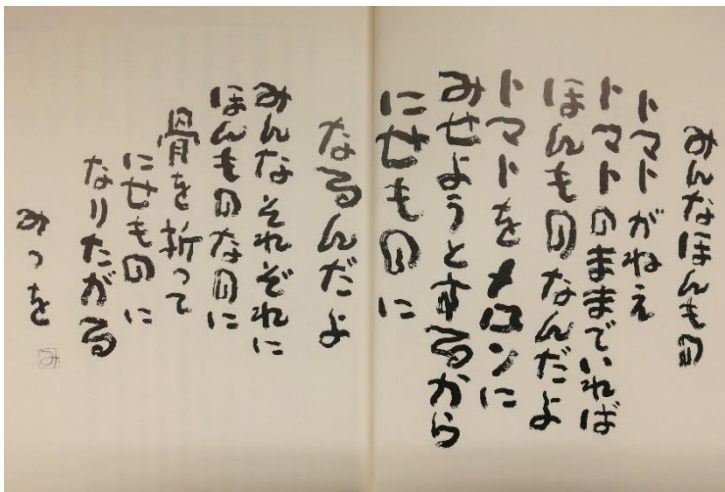 みんなほんもの
トマトがねえ
トマトのままでいれば
ほんものなんだよ
トマトをメロンに
みせようとするから
にせものに
なるんだよ
みんなそれぞれに
ほんものなのに
骨を折って
にせものに
なりたがる
みつを
み